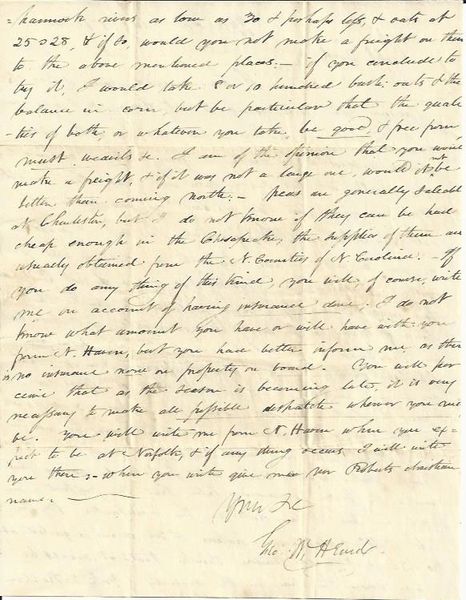 -hannock river as low as 30 & perhaps less, & oats at
25 a 28, & if so, would you not make a freight on them
to the above mentioned places; - if you conclude to
try it, I would take 8 or 10 hundred bush: oats & the
balance in corn but be particular that the quali
-ties of both, or whatever you take, be good, & free from
must weavils &c. I am of the opinion that you would
make a freight, & if it was not a large one, would it not be
better than coming north; - peas are generally saleable
at Charleston, but I do not know if they can be had
cheap enough in the Chesapeake, the supplies of them are
usually obtained from the N. Counties of N Carolina. If
you do any thing of this kind, you will, of course, write
me on account of having insurance done. I do not
know what amount you have or will have with you
from N. Haven, but you had better inform me, as there
is no insurance now on property on board. You will per
ceive that as the season is becoming late, it is very
necessary to make all possible despatch wherever you may
be. You will write me from N. Haven when you ex-
pect to be at Norfolk, & if any thing occurs, I will write
you there; - when you write give me Roberts christian
name. -
Yours &c
Geo. W.